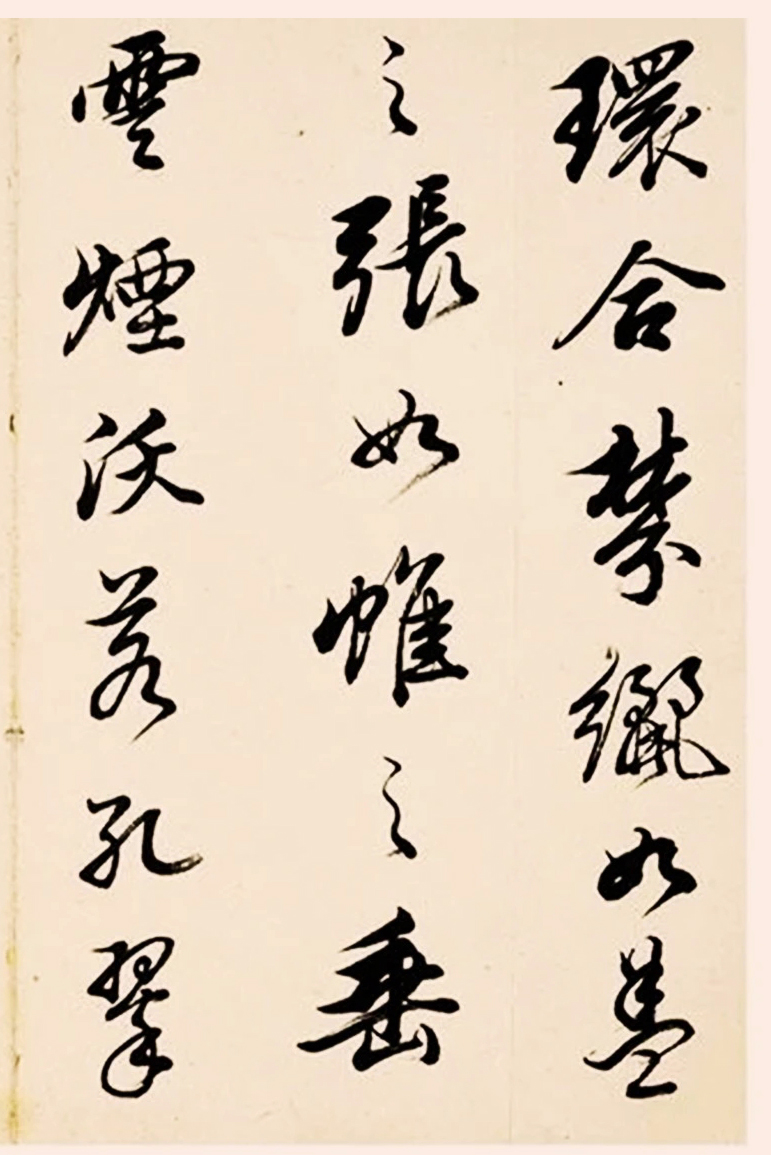 環合棼纚如盖
之張如帷之垂
雲煙沃若孔翠